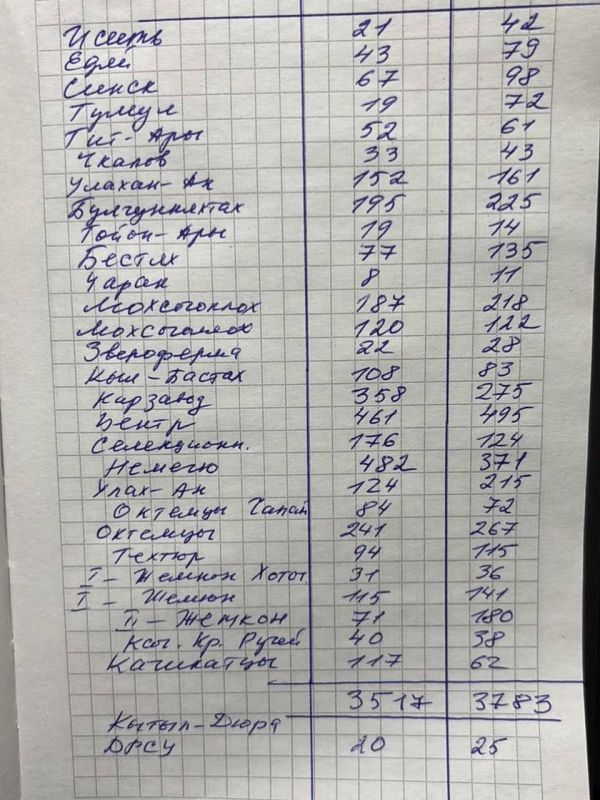 Исить 21 42
Едяй 43 79
Синск 67 98
Тумул 19 72
Тит-Ары 52 61
Чкалов 33 43
Улахан-Ан 152 161
Булгунняхтах 195 225
Тойон-Ары 19 14
Бестях 77 135
Чаран 8 11
Мохсоголлох 187 218
Мохсоголлох 120 122
Звероферма 22 28
Кыл-Бастах 108 83
Кирзавод 358 275
Центр 461 495
Селекционн. 176 124
Немегю 482 371
Улах-Ан 124 215
Октемцы Чапай 84 72
Октемцы 241 267
Техтюр 94 115
I - Жемкон Хотог 31 36
I - Жемкон 115 141
II - Жемкон 71 180
Кр. Ручей 40 38
Качикатцы 117 62
3517 3783
Кытыл-Дюра
ДРСУ 20 25